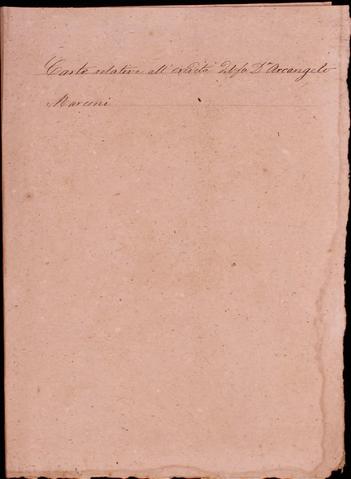 Carte relative all' eredità del fu Dn Arcangelo
Marconi